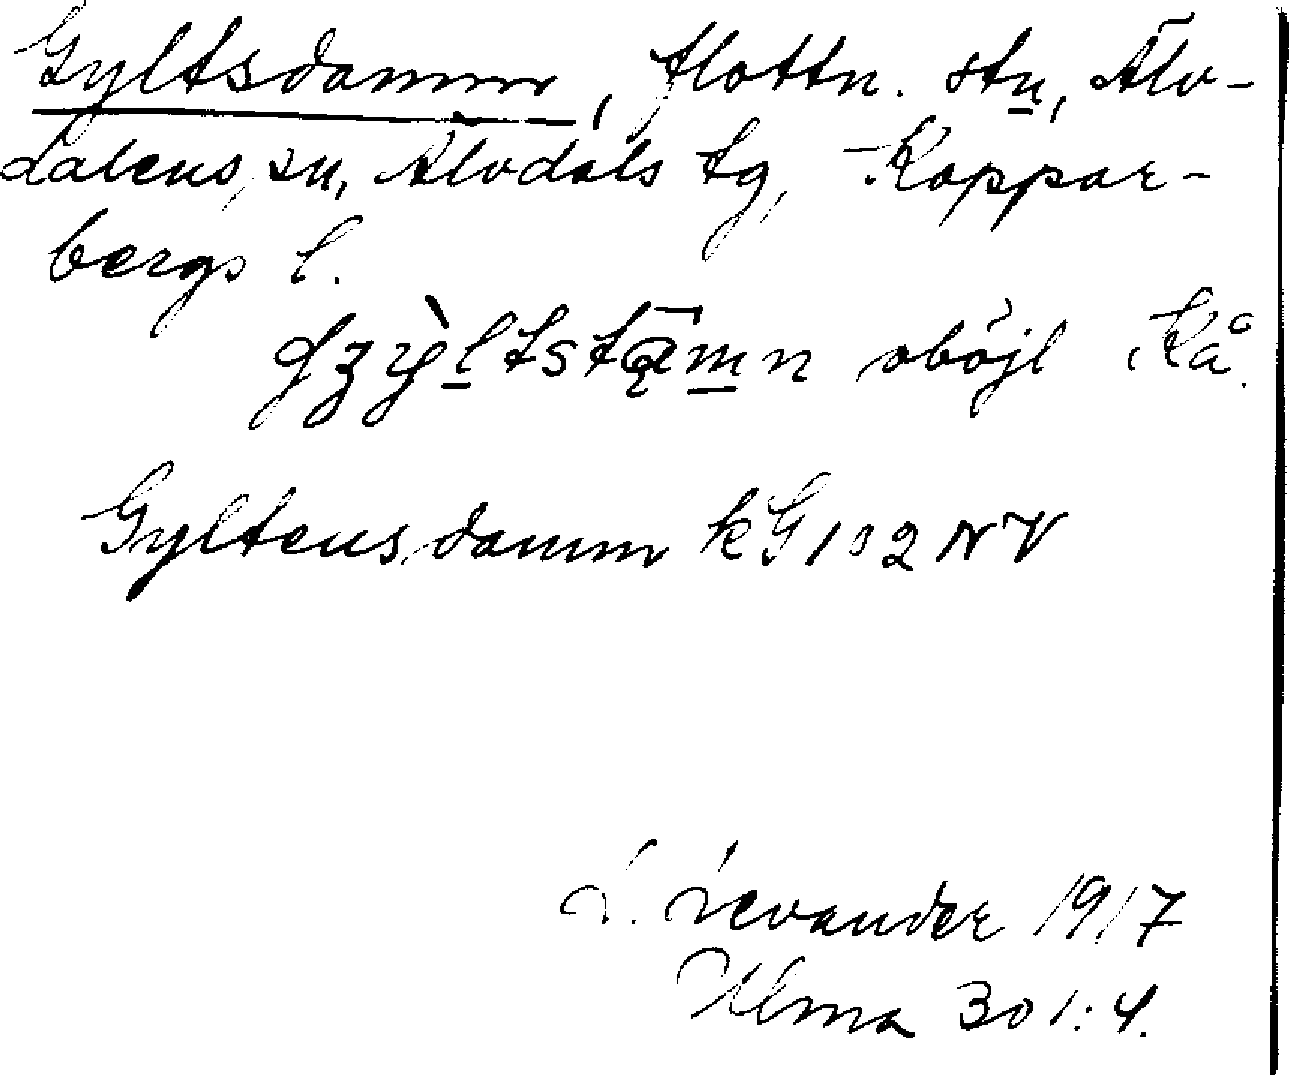 Gyltsdamm, flottn. stn, Älv-
dalens sn, Älvdals tg, Koppar-
bergs l.
oböjl Kå.
Gyltensdamm kG 102 NV
L. Levander 1917
Ulma 301:4.